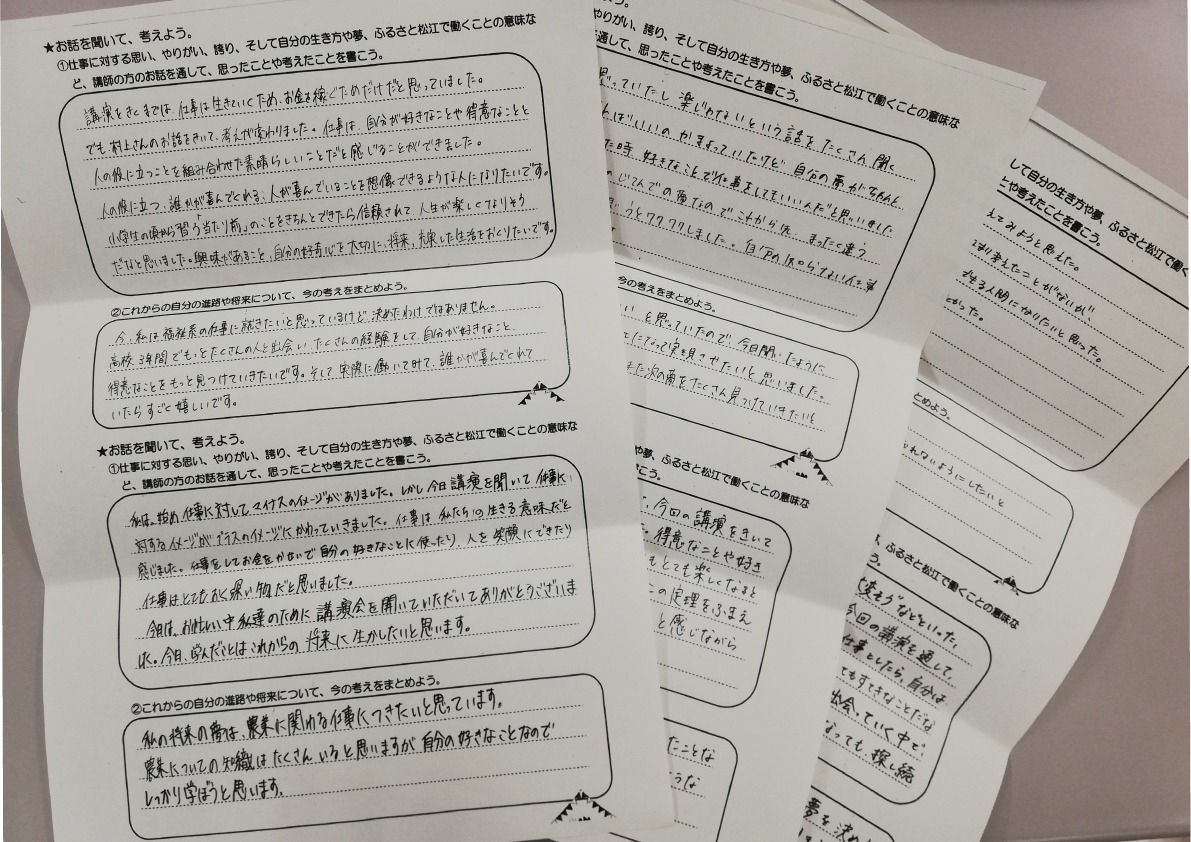 ★お話を聞いて、考えよう。
①仕事に対する思い、やりがい、誇り、そして自分の生き方や夢、ふるさと松江で働くことの意味な
ど、講師の方のお話を通して、思ったことや考えたことを書こう。
講演をきくまでは、仕事は生きていくため、お金を稼ぐためだけだと思っていました。
でも村上さんのお話をきいて、考えが変わりました。仕事は、自分が好きなことや得意なことと
人の役に立つことを組み合わせた素晴らしいことだと感じることができました。
人の役に立つ、誰かが喜んでくれる、人が喜んでいることを想像できるような人になりたいです。
小学生の頃から習う「当たり前」のことをきちんとできたら信頼されて、人生が楽しくなりそう
だなと思いました。興味があること、自分の好奇心を大切に、将来、充実した生活をおくりたいです。
②これからの自分の進路や将来について、今の考えをまとめよう。
今、私は福祉系の仕事に就きたいと思っているけど、決めたわけではありません。
高校3年間でもっとたくさんの人と出会い、たくさんの経験をして、自分が好きなこと、
得意なことをもっと見つけていきたいです。そして実際に働いてみて、誰かが喜んでくれて
いたらすごく嬉しいです。
★お話を聞いて、考えよう。
①仕事に対する思い、やりがい、誇り、そして自分の生き方や夢、ふるさと松江で働くことの意味な
ど、講師の方のお話を通して、思ったことや考えたことを書こう。
私は、始め仕事に対してマイナスのイメージがありました。しかし今日講演を聞いて仕事に
対するイメージがプラスのイメージにかわっていきました。仕事は私たちの生きる意味だと
感じました。仕事をしてお金をかせいで自分の好きなことに使ったり、人を笑顔にできたり
仕事はとてもおく深い物だと思いました。
今日は、お忙しい中私達のために講演会を開いていただいてありがとうございま
した。今日、学んだことはこれからの将来に生かしたいと思います。
②これからの自分の進路や将来について、今の考えをまとめよう。
私の将来の夢は、農業に関わる仕事につきたいと思っています。
農業についての知識はたくさんいると思いますが自分の好きなことなので
しっかり学ぼうと思います。
やりがい、誇り、そして自分の生き方や夢、ふるさと松江で働くことの意味な
を通して、思ったことや考えたことを書こう。
思っていたし楽しめないという話をたくさん聞く
ばいいのかまよっていたけど、自分の夢がちゃんと
た時、好きなことで仕事をしてもいいんだと思いました
の夢なのでこれから先、まったく違う
うとワクワクしました。自分の知らない仕事
今の考えをまとめよう。
と思っていたので、今日聞いたように
になって実現させたいと思いました。
また次の夢をたくさん見つけていきたいと
や夢、ふるさと松江で働くことの意味な
こう。
今回の講演をきいて
得意なことや好き
もとても楽しくなると
この実理をふまえ
と感じながら
たことな
うな
して自分の生き方や夢、ふるさと松江で働く
とや考えたことを書こう。
えてみようと思えた。
考えたことがないが、
きる人間になりたいと思った。
とめよう。
れないようにしたいと
、ふるさと松江で働くことの意味な
変わる"などといった、
今回の講演を通して、
仕事としたら、自分は
てもすてきなことだな
出会っていく中で、
なっても探し続
夢を決め